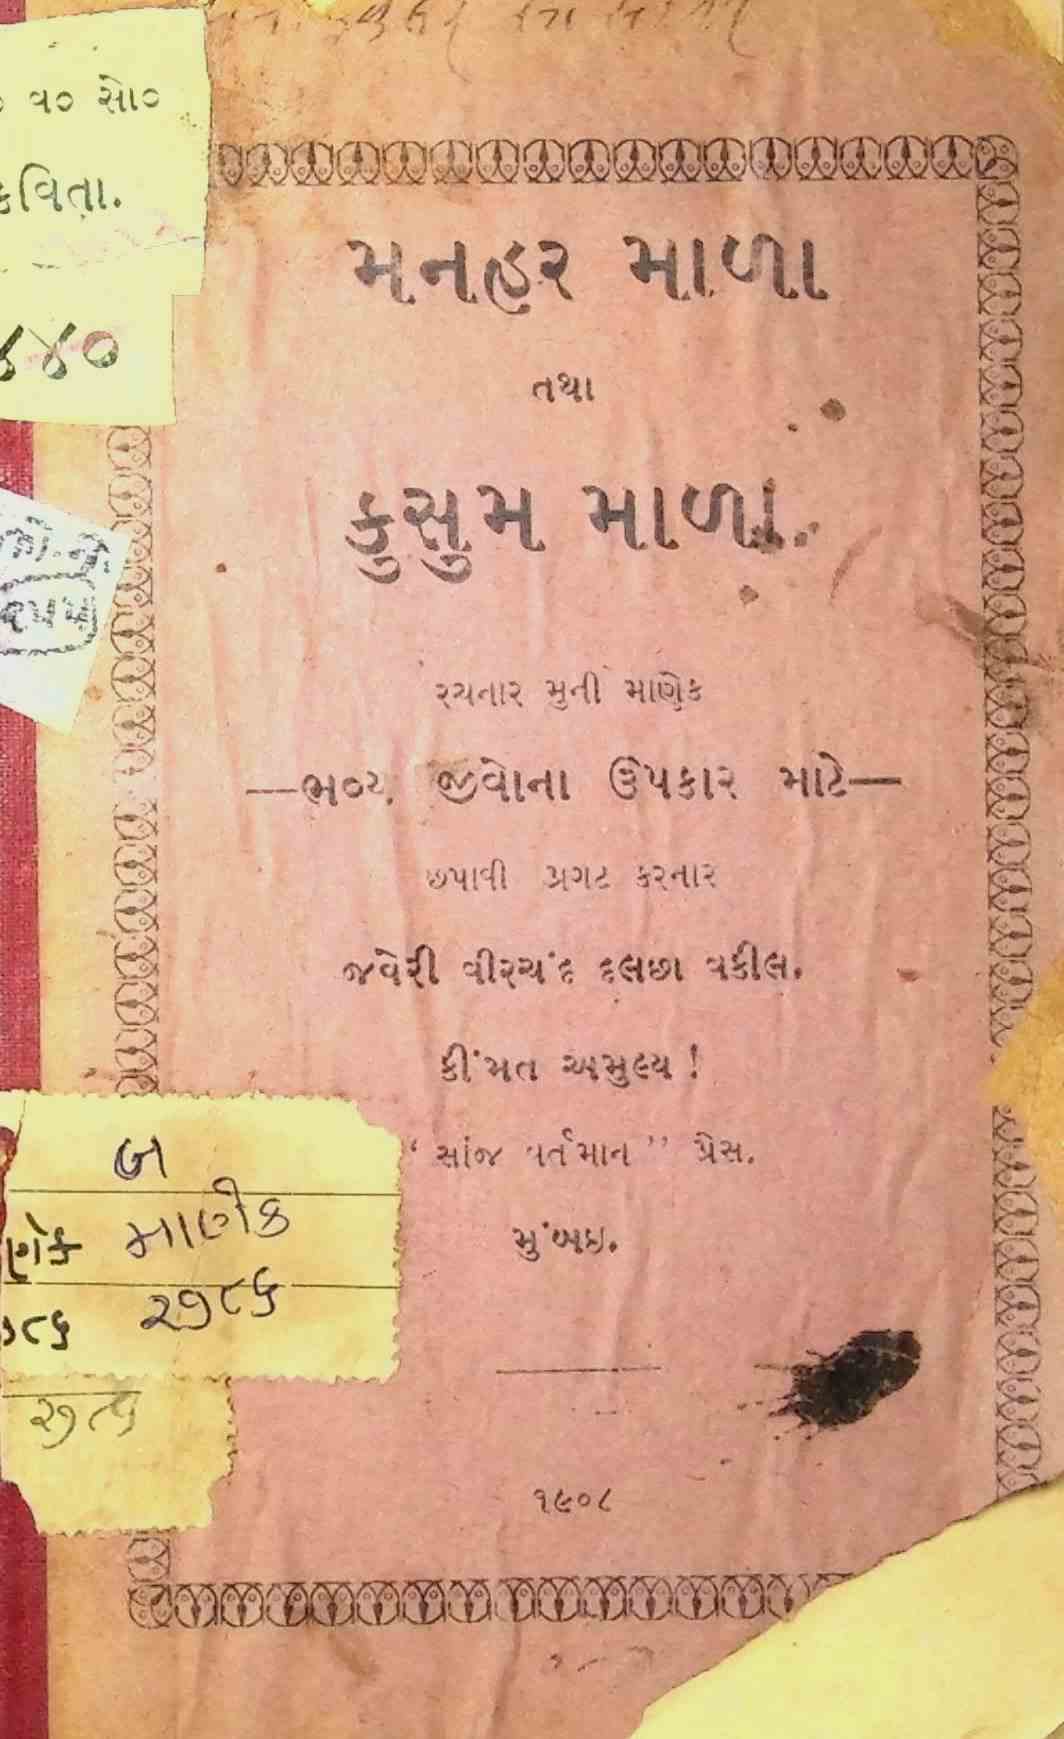 વ૦ સો૦
કવિતા.
૪૪૦
મનહર માળા
તથા
કુસુમ માળા.
રચનાર મુની માણેક
—ભવ્ય જીવોના ઉપકાર માટે—
છપાવી પ્રગટ કરનાર
જવેરી વીરચંદ દલછા વકીલ.
કીંમત અમુલ્ય !
“ સાંજ વર્તમાન ” પ્રેસ.
મુંબઇ.
બ
ણેક માણેક
૭૮૬ ૨૭૮૬
૨૭૮૬
૧૯૦૮